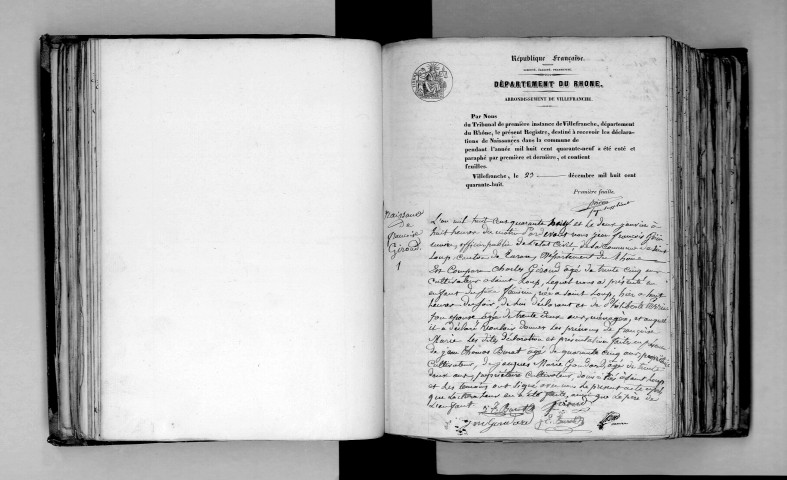 République Française.
DÉPARTEMENT DU RHONE.
ARRONDISSEMENT DE VILLEFRANCHE.
Par Nous
du Tribunal de première instance de Villefranche, département
du Rhône, le présent Registre, destiné à recevoir les déclara-
tions de Naissances dans la commune de
pendant l'année mil huit cent quarante-neuf a été coté et
paraphé par première et dernière, et contient
feuilles.
Villefranche, le 22 décembre mil huit cent
quarante-huit.
Première feuille.
Naissance
de
Giroud
1
L'an mil huit cent quarante neuf et le deux janvier à
huit heures du matin par devant nous jean françois
officier public de l'état Civil de la Commune de Saint
Loup, canton de Tarare, département du Rhône
Est Comparu Charles Giroud âgé de trente cinq ans
Cultivateur a Saint Loup, lequel nous a présenté un
enfant du née a Saint Loup, hier a huit
heures du soir, de lui déclarant et de
son epouse agée de trente deux ans, ménagère, et auquel
il a déclaré vouloir donner les prénoms de françoise
Marie les dites déclaration et présentation faites en présence
de jean Thomas Barat âgé de quarante cinq ans, propriétaire
Cultivateur, de jacques Marie âgé de trente
deux ans, propriétaire Cultivateur, tous a Saint Loup
et les temoins ont signé avec nous le present acte après
que lecture leur en a été faite, ainsi que le père de
L'enfant
Giroud